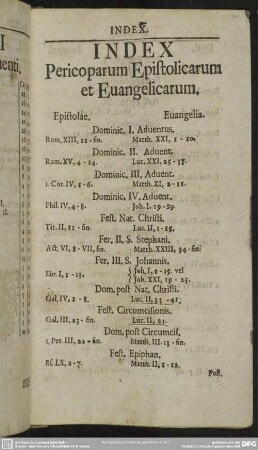 INDEX.
INDEX
Pericoparum Epistolicarum
et Euangelicarum.
Epistolae. Euangelia.
Dominic. I. Aduentus.
Rom. XIII, 11-fin. Matth. XXI, 1-10.
Dominic. II. Aduent.
Rom. XV, 4-14. Luc. XXI, 25-37.
Dominic. III. Aduent.
1. Cor. IV, 1-6. Matth. XI, 2-11.
Dominic. IV. Aduent.
Phil. IV, 4-8. Joh. I. 19-29.
Fest. Nat. Christi.
Tit. II, 11-fin. Luc. II, 1-15.
Fer. II, S. Stephani.
Act. VI, 8-VII, fin. Matth. XXIII, 34-fin.
Fer. III, S. Johannis.
Eir. I, 1-13. { Joh. I, 1-15. vel
Joh. XXI, 19-25.
Dom. post Nat. Christi.
Gal. IV, 1-8. Luc. II, 33-41.
Fest. Circumcisionis.
Gal. III, 23-fin. Luc. II, 21.
Dom. post Circumcis.
1. Pet. III, 20-fin. Matth. III. 13-fin.
Fest. Epiphan.
Es. LX, 1-7. Matth. II, 1-12.
Post.